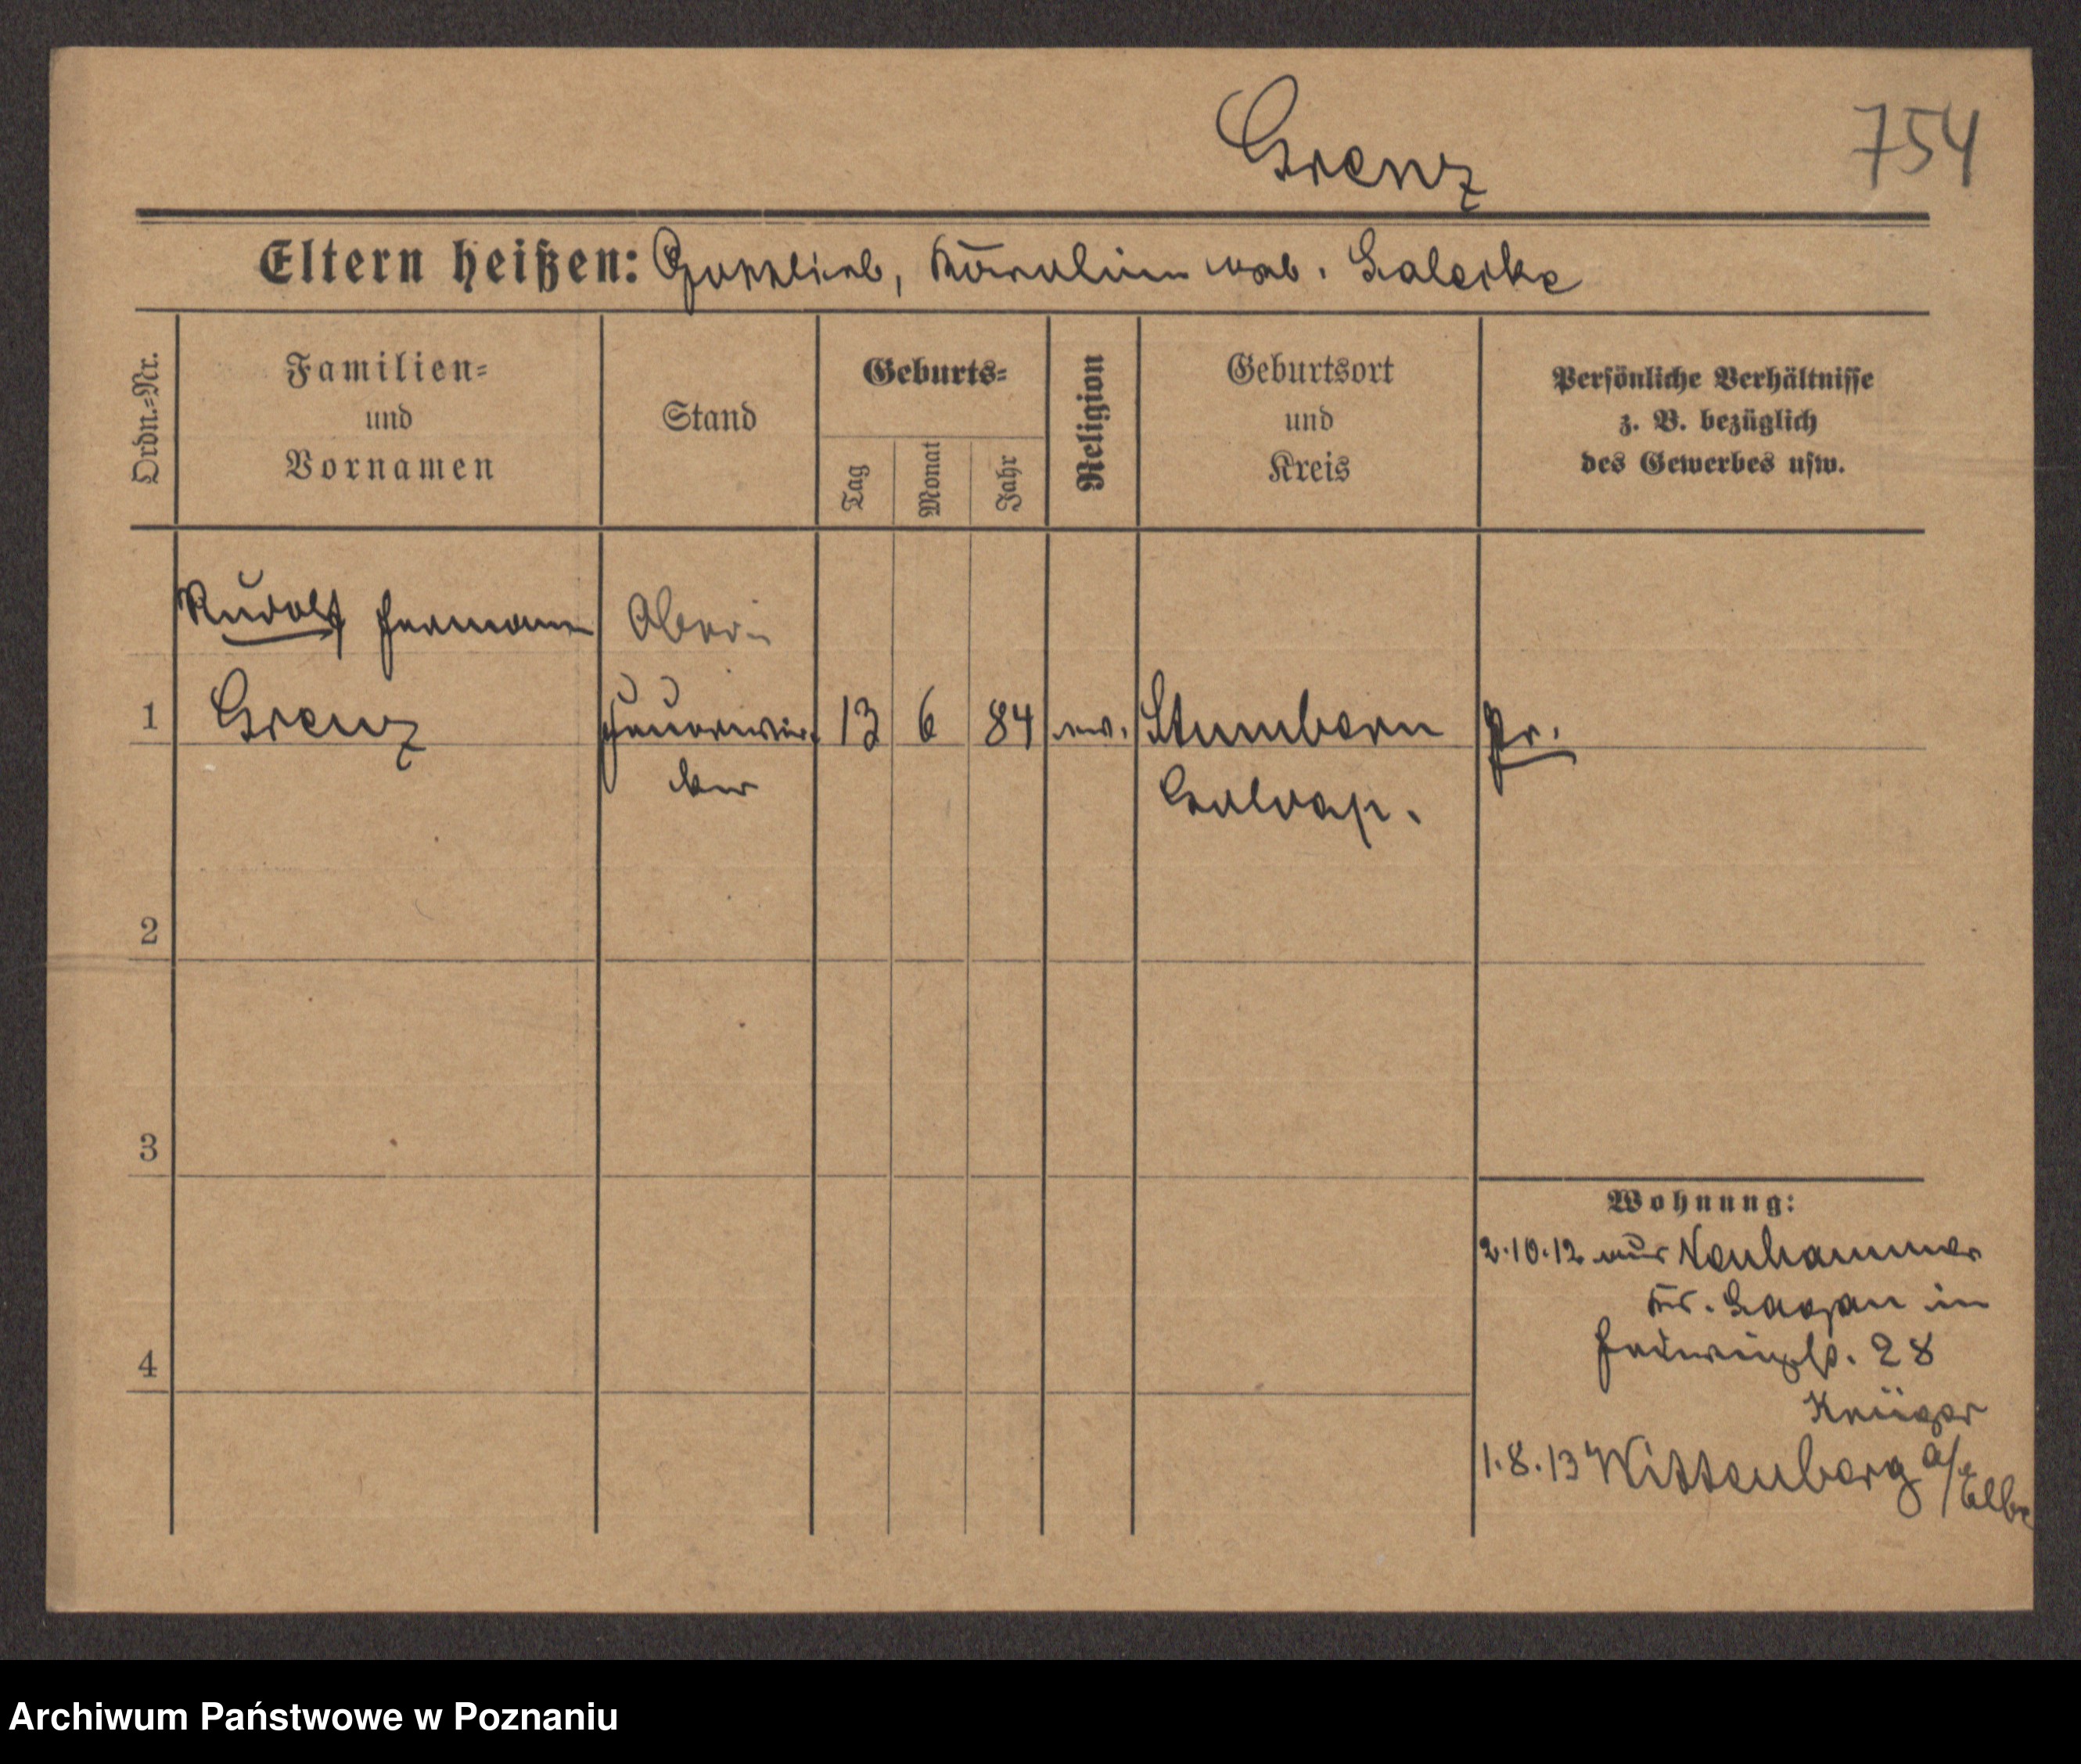 Grenz
754
Eltern heißen: Gottlieb, Karoline geb. Saleike
Ordn.=Nr.
Familien=
und
Vornamen
Stand
Geburts=
Tag
Monat
Jahr
Religion
Geburtsort
und
Kreis
Persönliche Verhältnisse
z. B. bezüglich
des Gewerbes usw.
Rudolf Hermann
Ober=
1 Grenz Feuerwer= 13 6 84 ev. Stumbern Pr.
ker Goldap.
2
3
Wohnung:
2.10.12 aus Neuhammer
Kr. Sagan in
4
Hedwigstr. 28
Krüger
1.8.13 Wittenberg a/Elbe
Archiwum Państwowe w Poznaniu